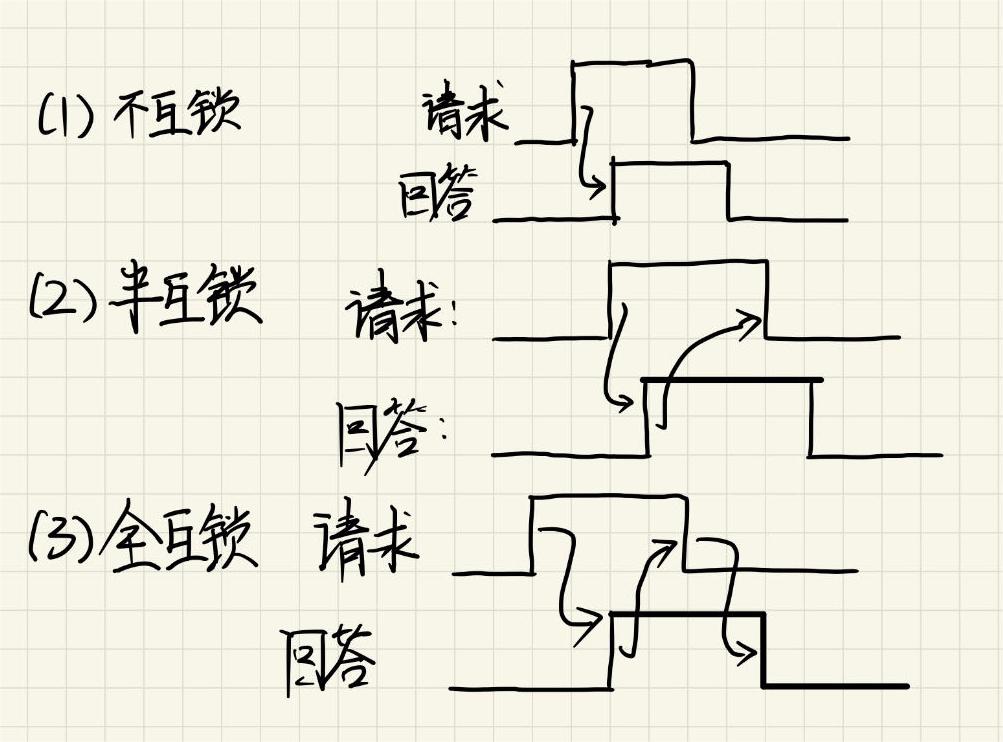 (1) 不互锁 请求
回答
(2) 半互锁 请求:
回答:
(3) 全互锁 请求
回答